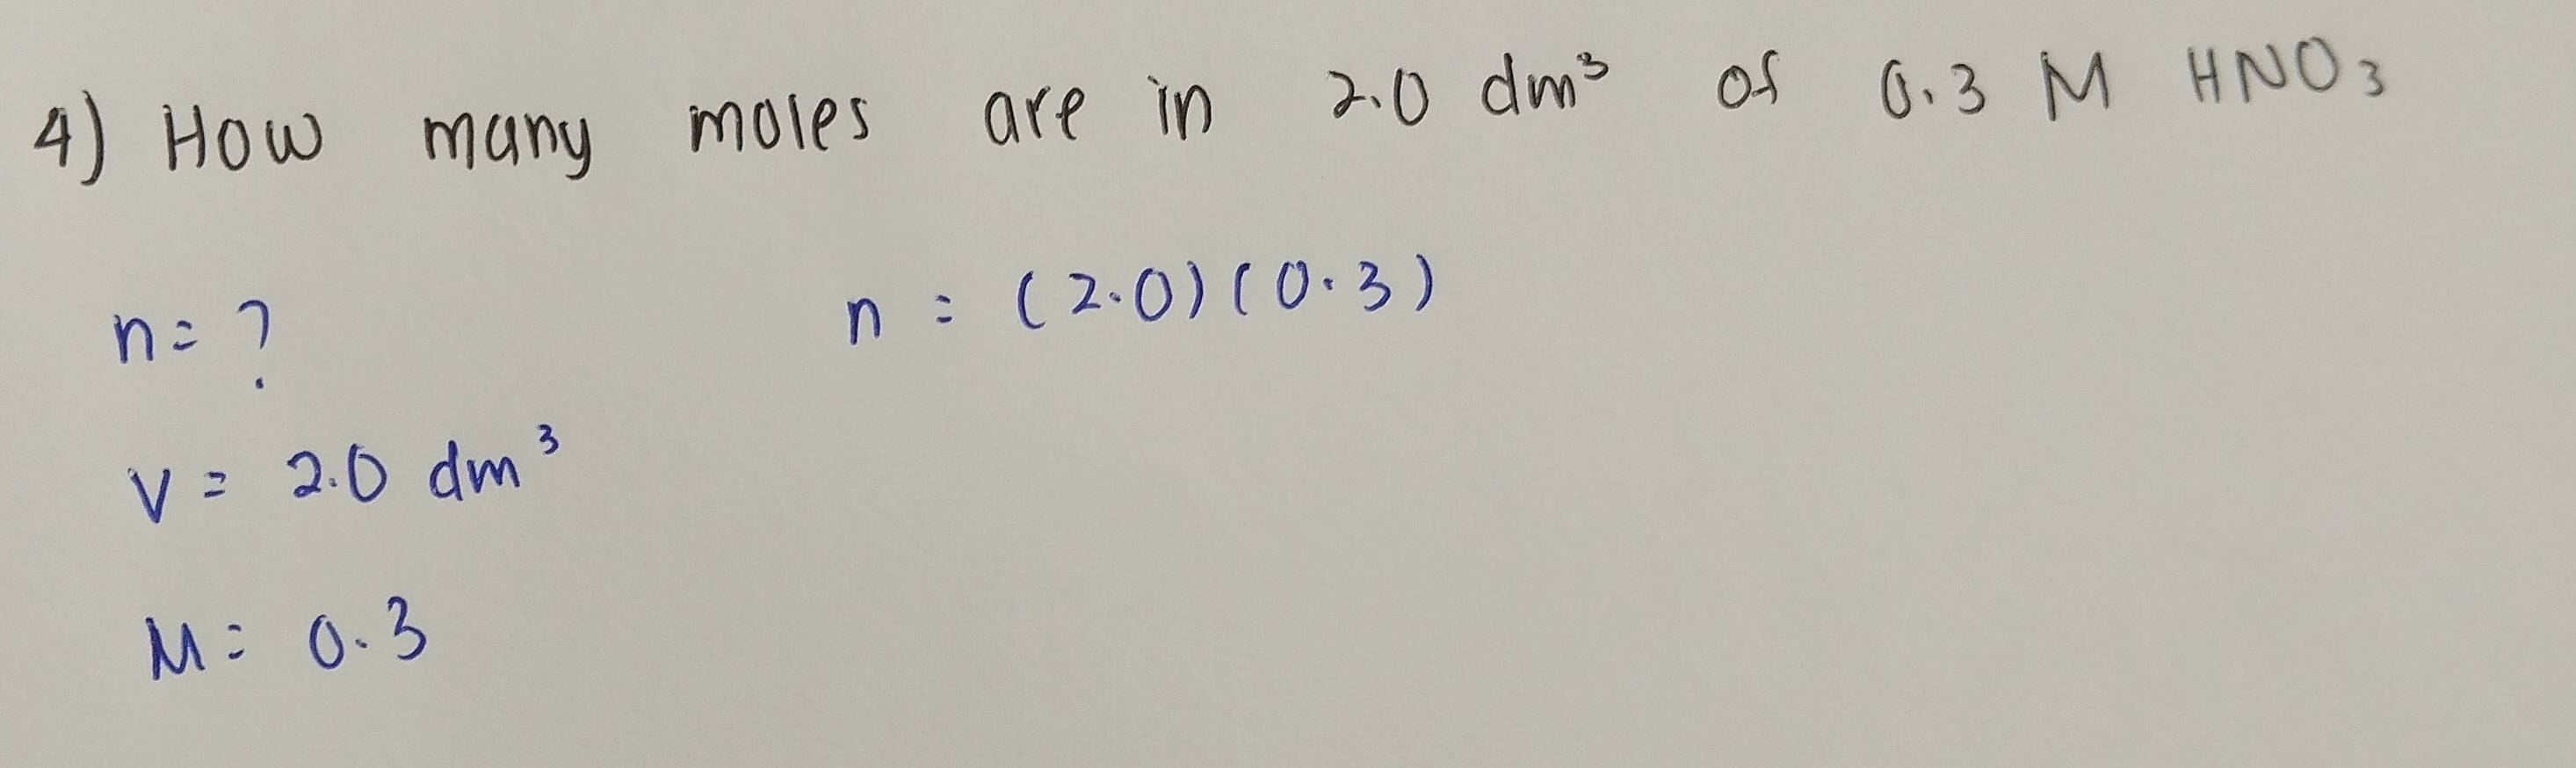 4) How many moles are in 2.0 dm³ of 0.3 M HNO₃
n = ? n = (2.0)(0.3)
V = 2.0 dm³
M = 0.3